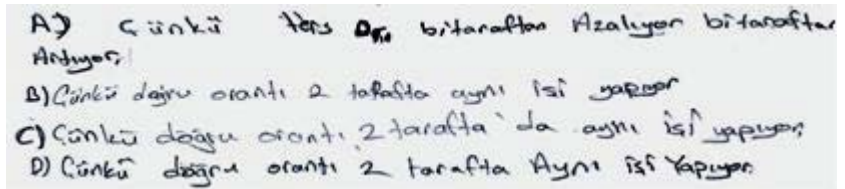 A) Çünkü ters Or. bitaraftan Azalıyor bitaraftan
Artıyor.
B) Çünkü doğru orantı 2 tarafta aynı işi yapıyor
C) Çünkü doğru orantı 2 tarafta da aynı işi yapıyor.
D) Çünkü doğru orantı 2 tarafta Aynı işi Yapıyor.